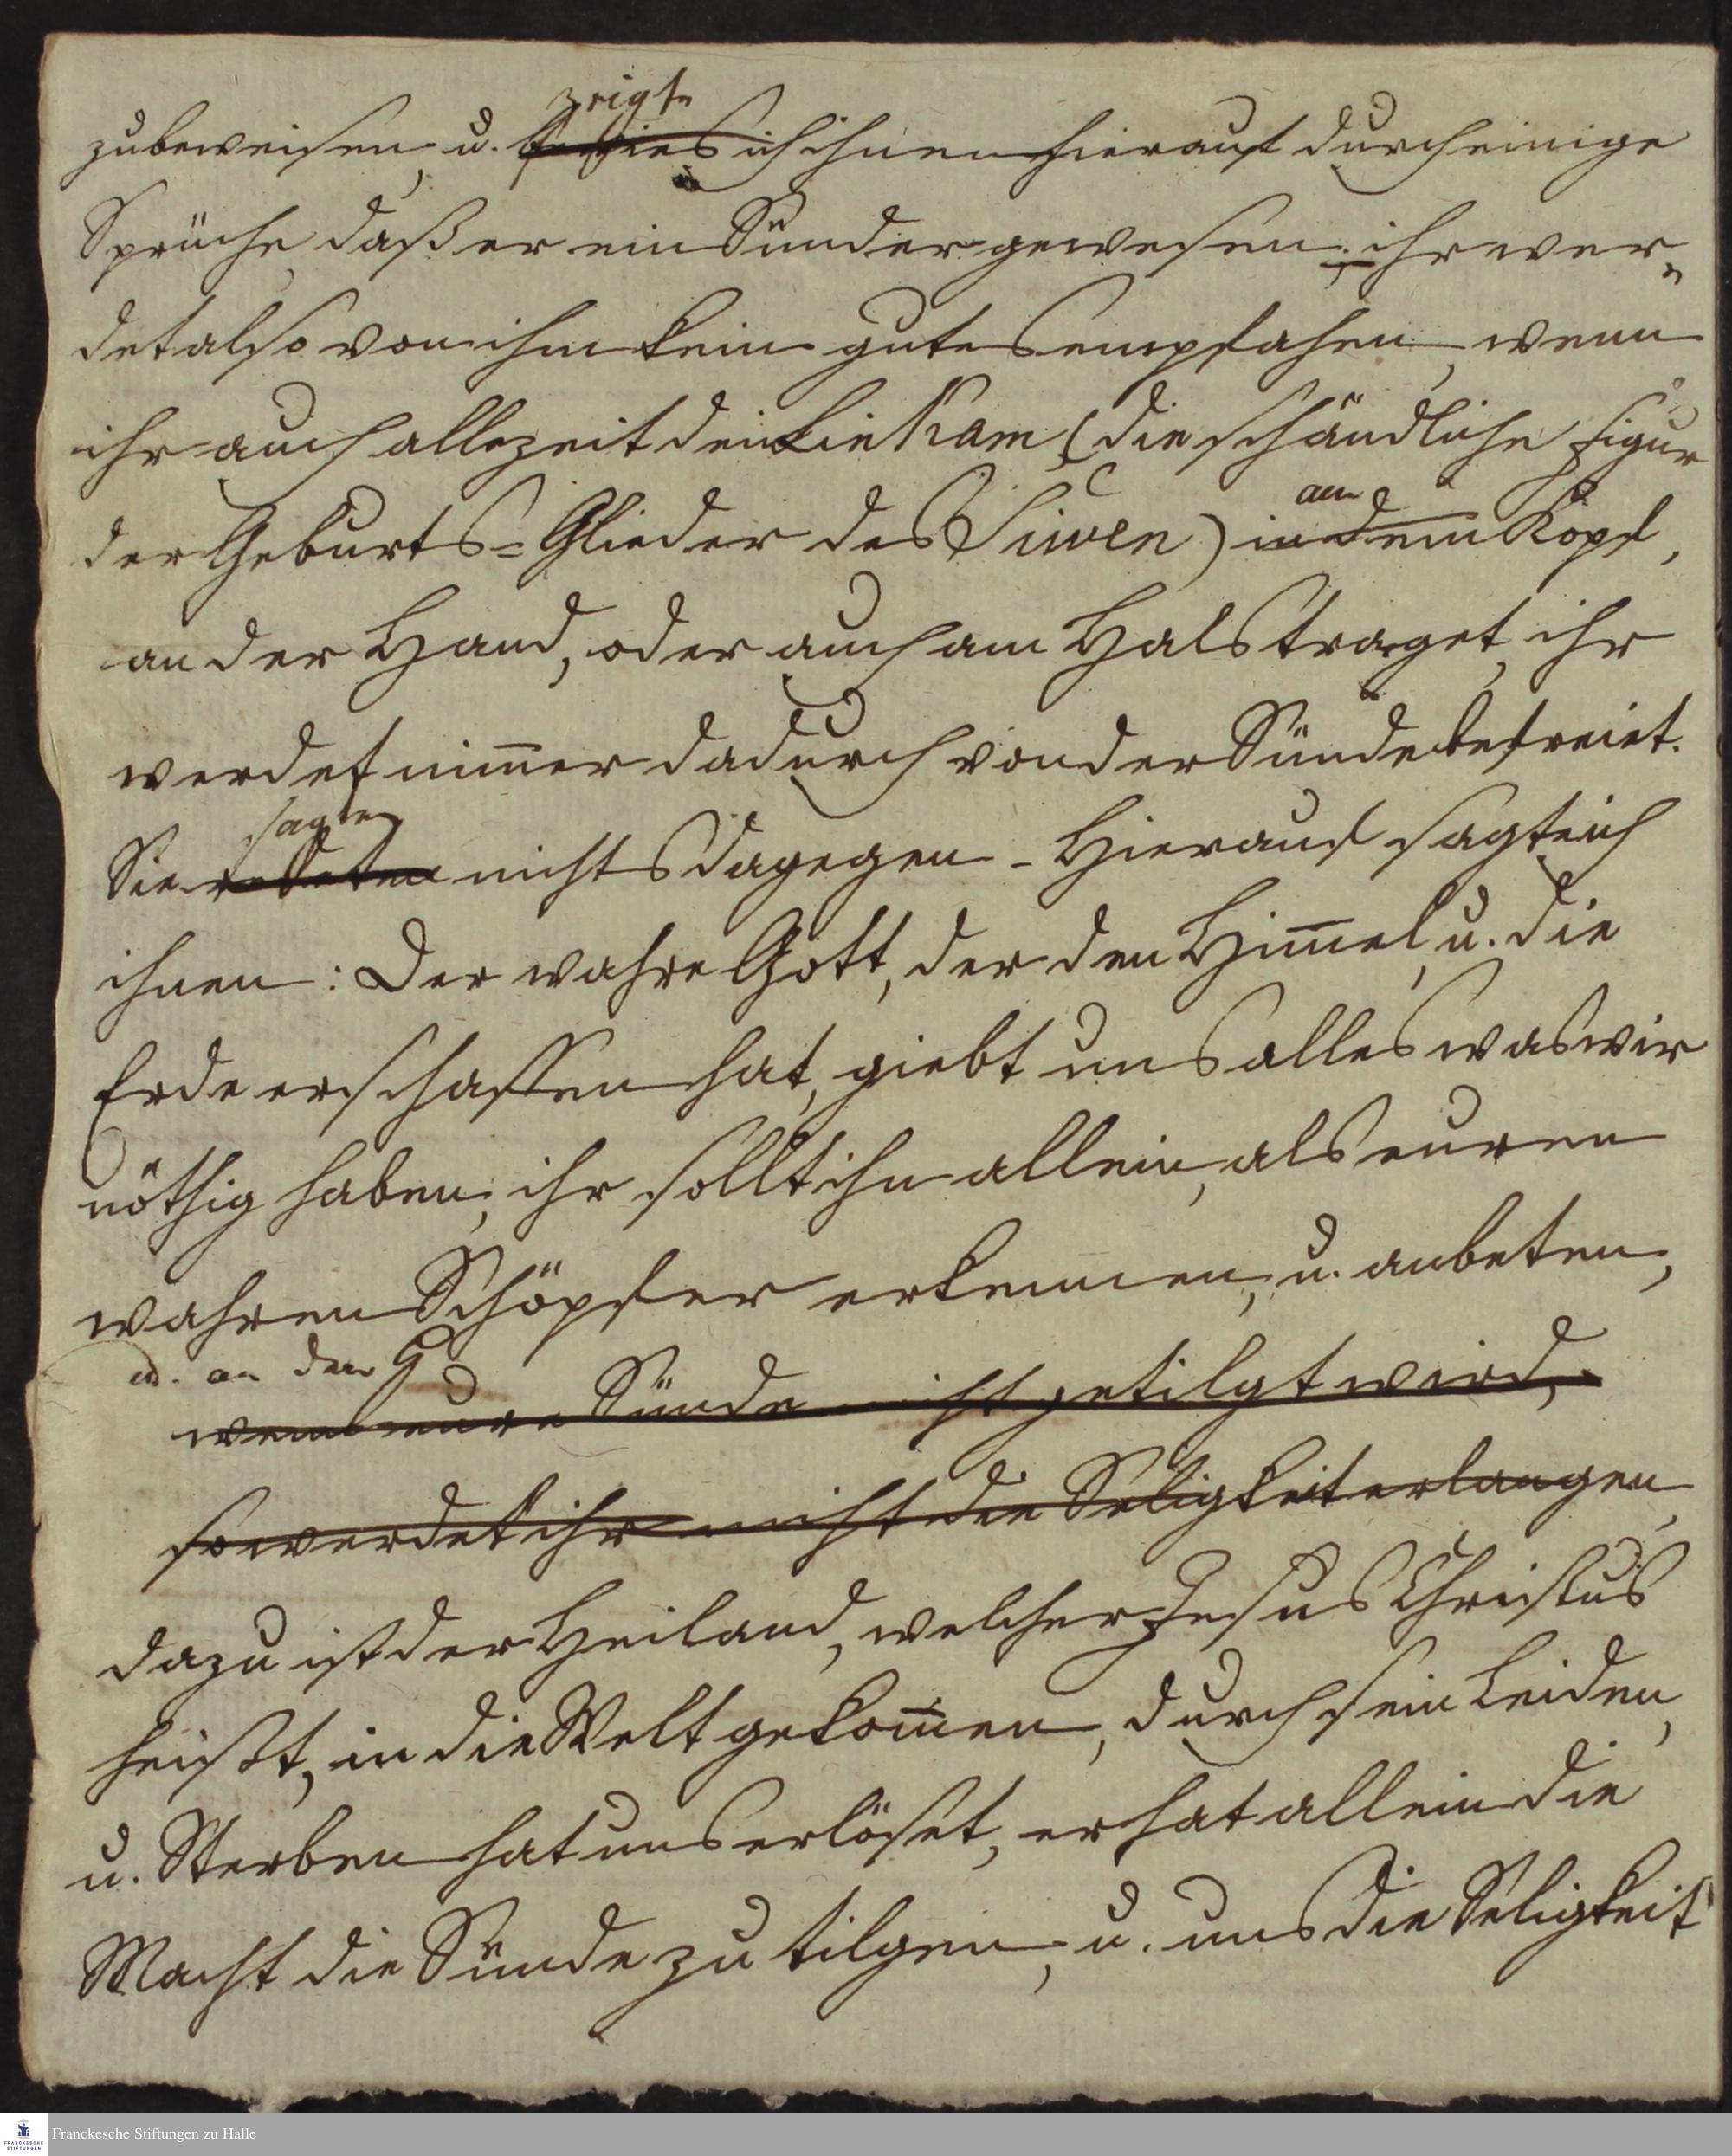 zeigte
zubeweisen, u. bewies ich ihnen hierauf durch einige
Sprüche, daß er ein Sünder gewesen; ihr wer„
det also von ihm kein gutes empfahen, wenn
ihr auch allezeit den Linkam (die schändliche Figur
am
der Geburts=Glieder des Siwen) in dem Kopf,
an der Hand, oder auch am Hals traget, ihr
werdet nim̅er dadurch von der Sünde befreiet.
sagten
Sie redeten nichts dagegen - Hierauf sagte ich
ihnen: Der wahre Gott, der den Him̅el, u. die
Erde erschaffen hat, giebt uns alles was wir
nöthig haben, ihr sollt ihn allein, als euren
wahren Schöpfer erkennen, u. anbeten,
u. an den
wenn eure Sünde nicht getilgt wird,
so werdet ihr nicht die Seligkeit erlangen,
dazu ist der Heiland, welcher Jesus Christus
heißt, in die Welt gekom̅en, durch sein Leiden,
u. Sterben hat uns erlöset, er hat allein die
Macht die Sünde zu tilgen, u. uns die Seligkeit
Franckesche Stiftungen zu Halle